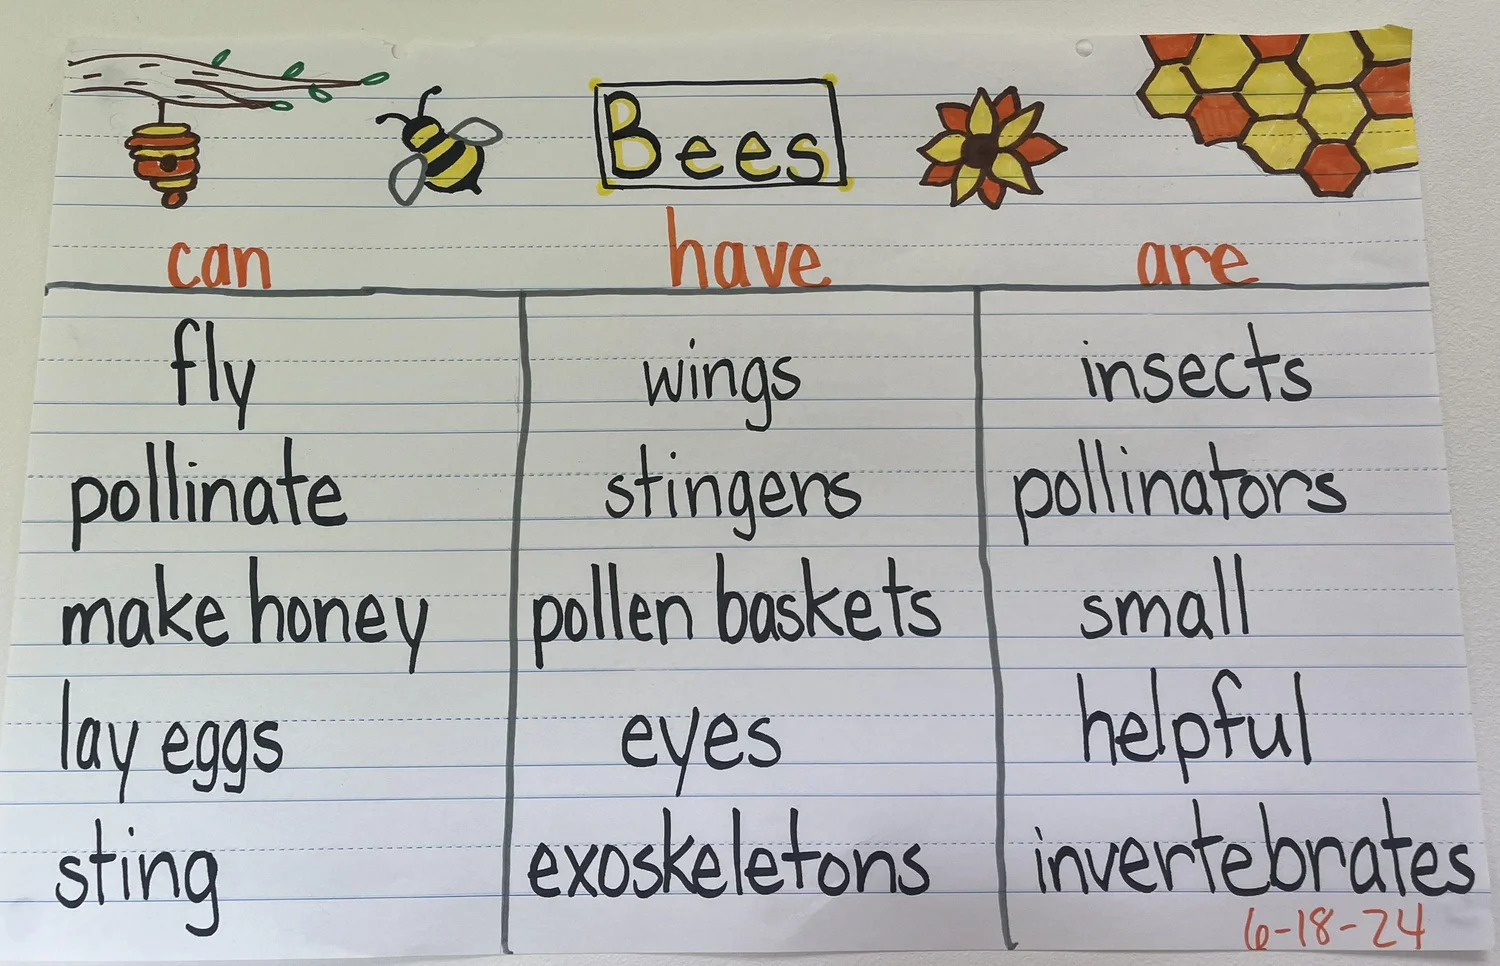 Bees
can have are
fly wings insects
pollinate stingers pollinators
make honey pollen baskets small
lay eggs eyes helpful
sting exoskeletons invertebrates
6-18-24